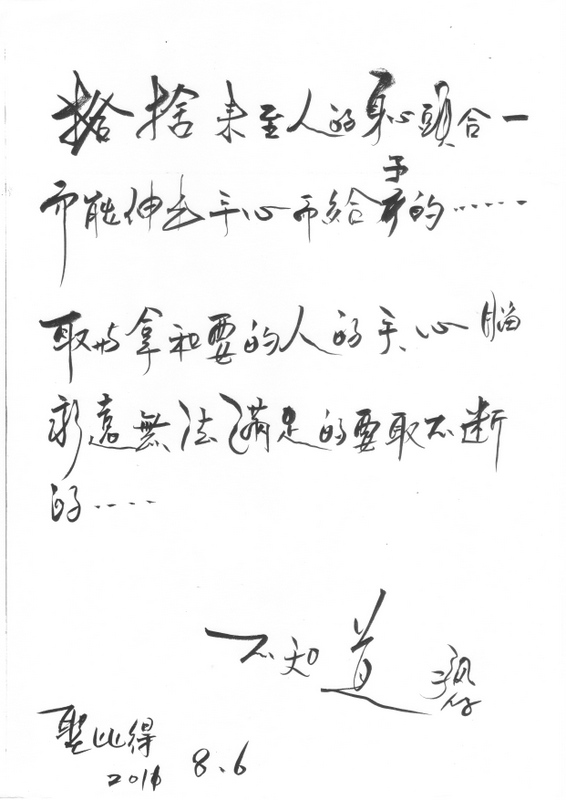 捨 捨 未至人的身心頭合一
而能伸出手心而給予的……
取與拿和要的人的手、心腦
永遠無法滿足的要取不斷
的‥‥
不知道
聖比得
8.6